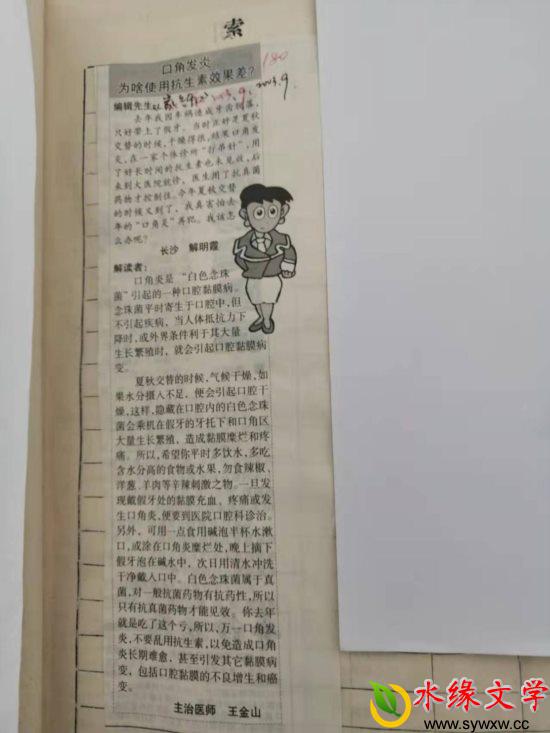 索
口角发炎
为啥使用抗生素效果差?
180
编辑先生:
2003.9.
去年我因车祸造成牙齿脱落,
只好带上了假牙。当时正好是夏秋
交替的时候,干燥得很,结果口角发
炎,在一家个体诊所“打吊针”,用
了好长时间的抗生素也未见效,后
来到大医院就诊,医生用了抗真菌
药物才控制住。今年夏秋交替
的时候又到了,我真害怕去
年的“口角炎”再犯。我该怎
么办呢?
长沙 解明霞
解读者:
口角炎是“白色念珠
菌”引起的一种口腔黏膜病。
念珠菌平时寄生于口腔中,但
不引起疾病,当人体抵抗力下
降时,或外界条件利于其大量
生长繁殖时,就会引起口腔黏膜病
变。
夏秋交替的时候,气候干燥,如
果水分摄入不足,便会引起口腔干
燥,这样,隐藏在口腔内的白色念珠
菌会乘机在假牙的牙托下和口角区
大量生长繁殖,造成黏膜糜烂和疼
痛。所以,希望你平时多饮水,多吃
含水分高的食物或水果,勿食辣椒、
洋葱、羊肉等辛辣刺激之物。一旦发
现戴假牙处的黏膜充血、疼痛或发
生口角炎,便要到医院口腔科诊治。
另外,可用一点食用碱泡半杯水漱
口,或涂在口角炎糜烂处,晚上摘下
假牙泡在碱水中,次日用清水冲洗
干净戴入口中。白色念珠菌属于真
菌,对一般抗菌药物有抗药性,所以
只有抗真菌药物才能见效。你去年
就是吃了这个亏,所以,万一口角发
炎,不要乱用抗生素,以免造成口角
炎长期难愈,甚至引发其它黏膜病
变,包括口腔黏膜的不良增生和癌
变。
主治医师 王金山
水缘文学
www.sywxw.cc